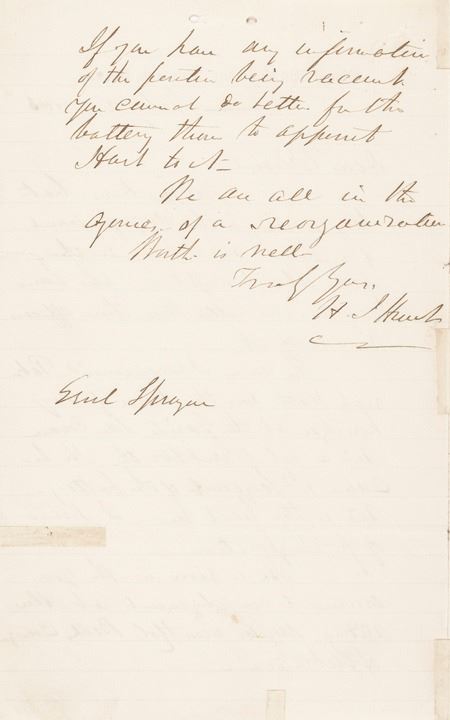 If you have any information
of the position being vacant
you cannot do better for the
battery than to appoint
Hart to it –
We are all in the
agonies of a reorganization
North is well –
Truly Yours
H J Hunt
Genl Sprague